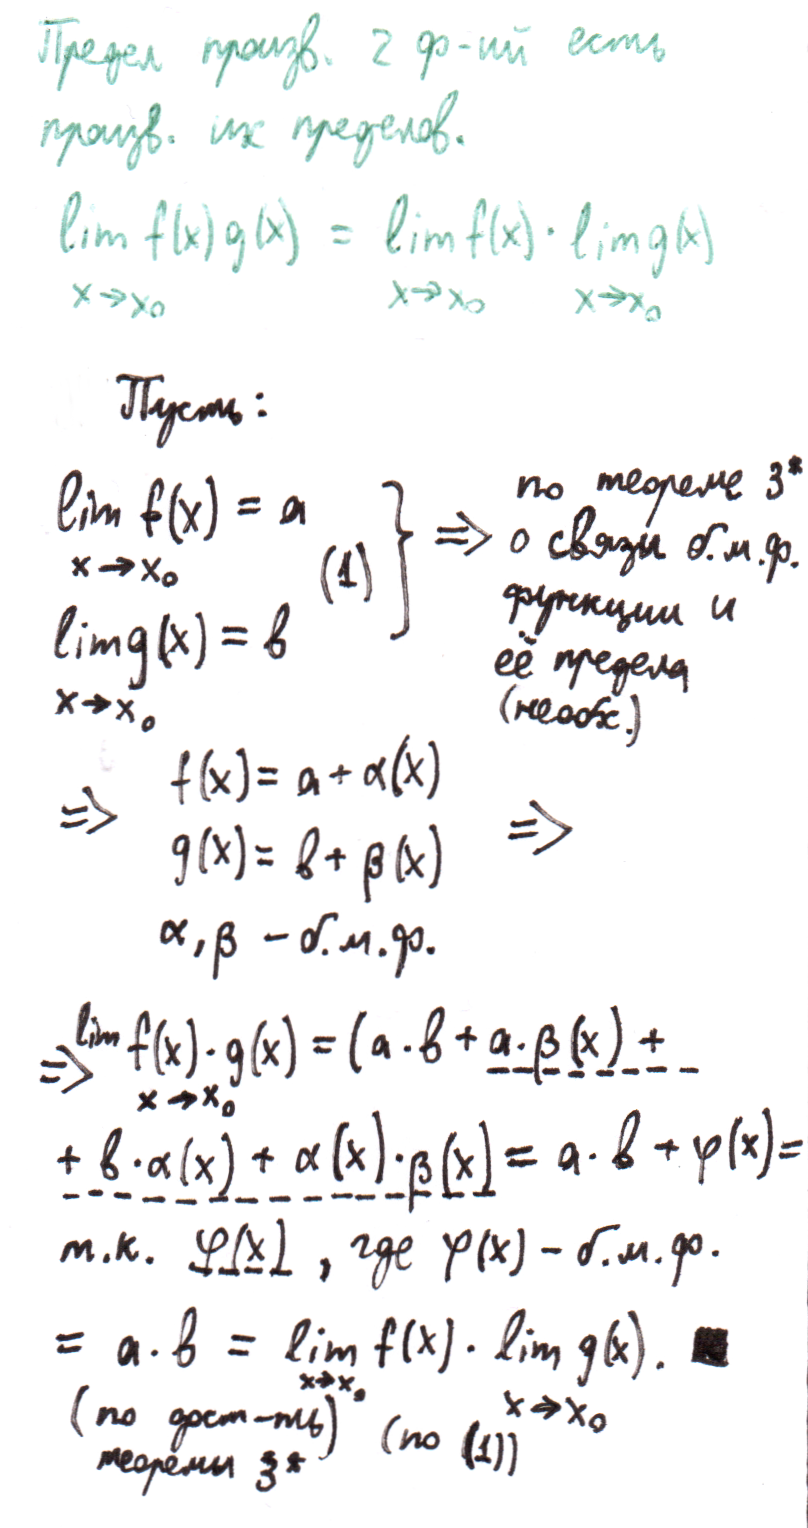 Предел произв. 2 ф-ий есть
произв. их пределов.
lim f(x) g(x) = lim f(x) · lim g(x)
x→x₀ x→x₀ x→x₀
Пусть:
lim f(x) = a
x→x₀
(1)
lim g(x) = b
x→x₀
} => по теореме 3*
о связи б.м.ф.
функции и
её предела
(необх.)
=> f(x) = a + α(x)
g(x) = b + β(x) =>
α, β - б.м.ф.
=> lim f(x)·g(x) = (a·b + a·β(x) +
x→x₀
+ b·α(x) + α(x)·β(x) = a·b + φ(x) =
т.к. φ(x), где φ(x) - б.м.ф.
= a·b = lim f(x) · lim g(x). ■
x→x₀ x→x₀
(по дост-ть (по (1))
теоремы 3*